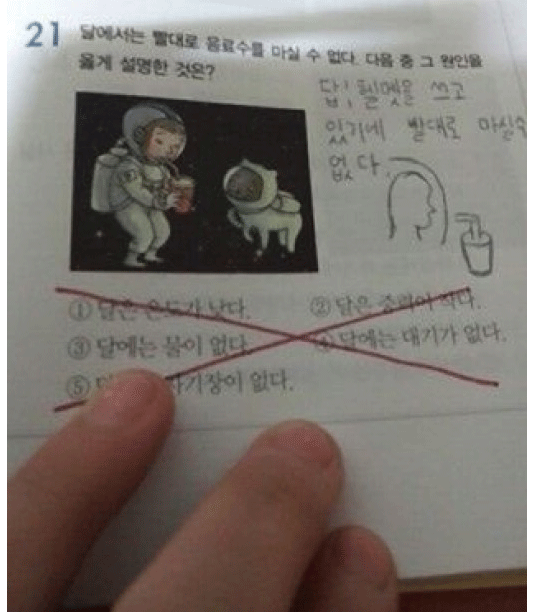 21 달에서는 빨대로 음료수를 마실 수 없다. 다음 중 그 원인을
옳게 설명한 것은?
답; 헬멧을 쓰고
있기에 빨대로 마실수
없다.
① 달은 온도가 낮다. ② 달은 중력이 작다.
③ 달에는 물이 없다. ④ 달에는 대기가 없다.
⑤ 자기장이 없다.